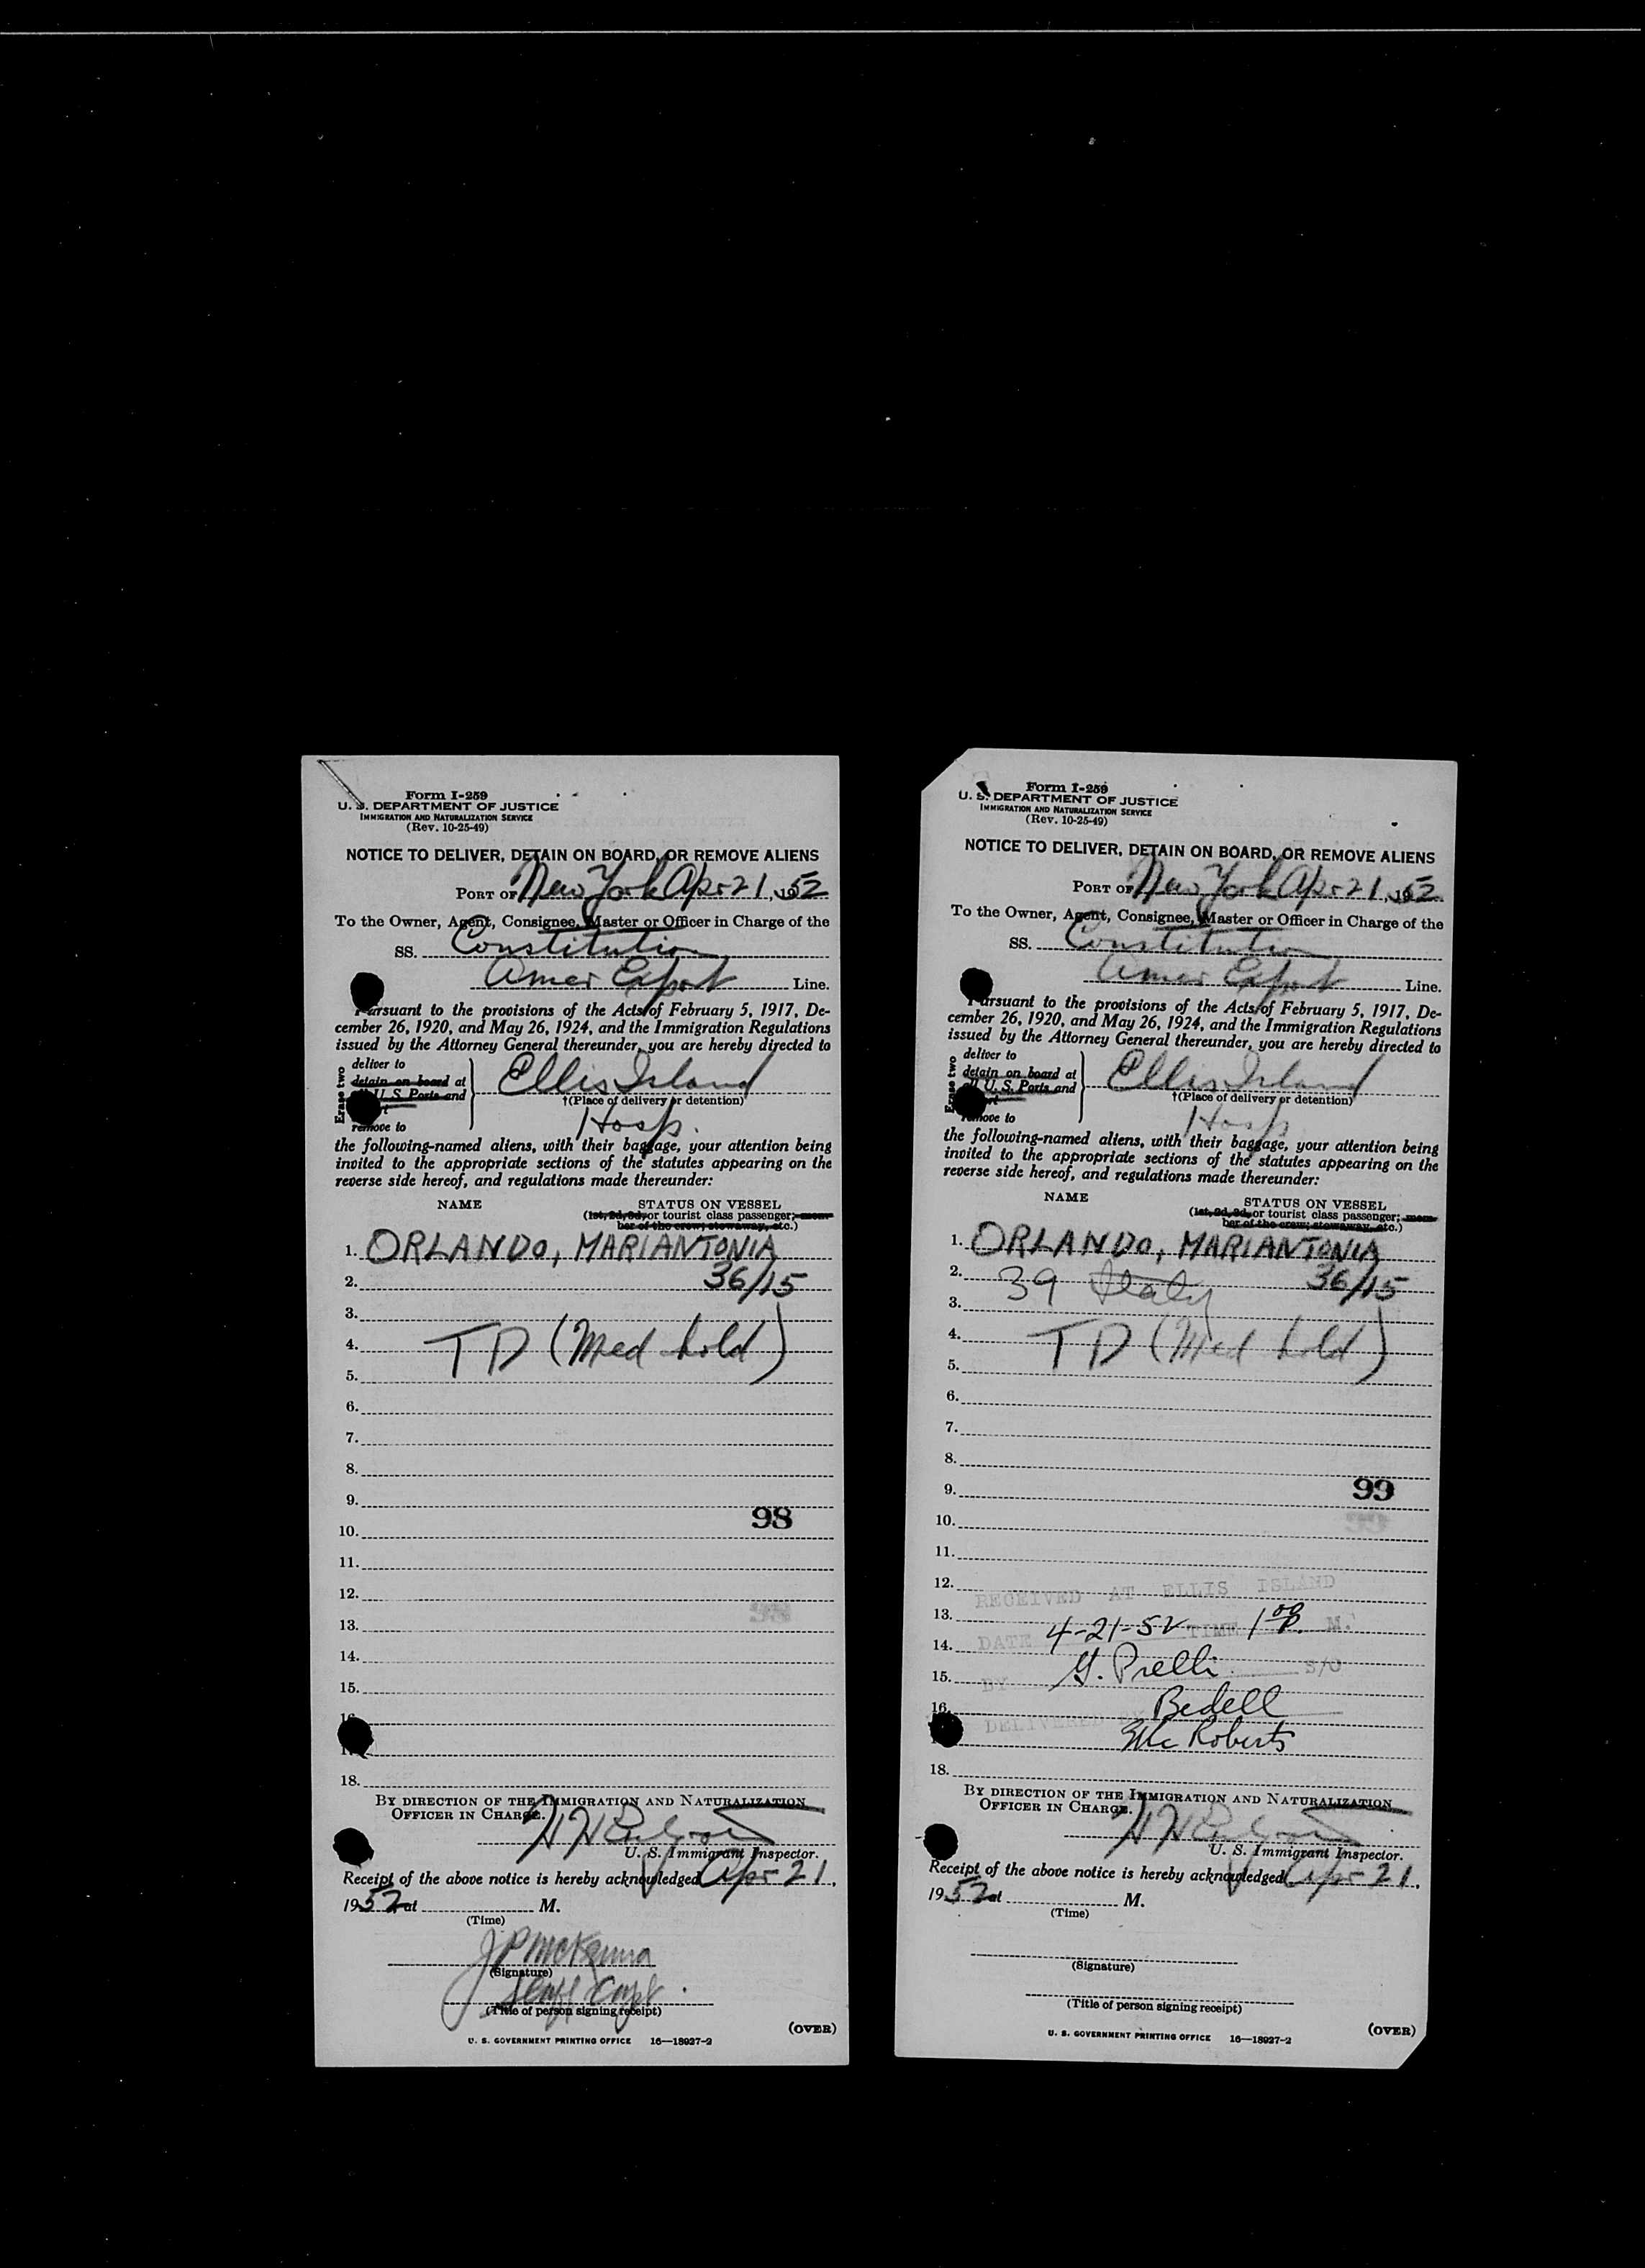 Form I-259
U. S. DEPARTMENT OF JUSTICE
IMMIGRATION AND NATURALIZATION SERVICE
(Rev. 10-25-49)
NOTICE TO DELIVER, DETAIN ON BOARD, OR REMOVE ALIENS
PORT OF New York Apr 21, 1952
To the Owner, Agent, Consignee, Master or Officer in Charge of the
SS. Constitution
Amer Export Line.
Pursuant to the provisions of the Acts of February 5, 1917, De-
cember 26, 1920, and May 26, 1924, and the Immigration Regulations
issued by the Attorney General thereunder, you are hereby directed to
Erase two
deliver to
detain on board at
U. S. Ports and
remove to
Ellis Island
†(Place of delivery or detention)
Hosp.
the following-named aliens, with their baggage, your attention being
invited to the appropriate sections of the statutes appearing on the
reverse side hereof, and regulations made thereunder:
NAME STATUS ON VESSEL
(1st, 2d, 3d, or tourist class passenger; mem-
ber of the crew; stowaway, etc.)
1. ORLANDO, MARIANTONIA
2. 36/15
3.
4. TD (Med hold)
5.
6.
7.
8.
9.
98
10.
11.
12.
13.
14.
15.
16.
18.
BY DIRECTION OF THE IMMIGRATION AND NATURALIZATION
OFFICER IN CHARGE.
U. S. Immigrant Inspector.
Receipt of the above notice is hereby acknowledged Apr 21,
1952 at M.
(Time)
J P McKenna
(Signature)
Staff Capt.
(Title of person signing receipt)
(OVER)
U. S. GOVERNMENT PRINTING OFFICE 16—18927-2
Form I-259
U. S. DEPARTMENT OF JUSTICE
IMMIGRATION AND NATURALIZATION SERVICE
(Rev. 10-25-49)
NOTICE TO DELIVER, DETAIN ON BOARD, OR REMOVE ALIENS
PORT OF New York Apr 21, 1952
To the Owner, Agent, Consignee, Master or Officer in Charge of the
SS. Constitution
Amer Export Line.
Pursuant to the provisions of the Acts of February 5, 1917, De-
cember 26, 1920, and May 26, 1924, and the Immigration Regulations
issued by the Attorney General thereunder, you are hereby directed to
Erase two
deliver to
detain on board at
all U. S. Ports and
remove to
Ellis Island
†(Place of delivery or detention)
Hosp
the following-named aliens, with their baggage, your attention being
invited to the appropriate sections of the statutes appearing on the
reverse side hereof, and regulations made thereunder:
NAME STATUS ON VESSEL
(1st, 2d, 3d, or tourist class passenger; mem-
ber of the crew; stowaway, etc.)
1. ORLANDO, MARIANTONIA
2. 39 Italy 36/15
3.
4. TD (Med hold)
5.
6.
7.
8.
9. 99
10.
11.
12.
RECEIVED AT ELLIS ISLAND
13.
DATE 4-21-52 TIME 1 00 P. M.
14.
BY G. Prelli S/O
15.
16. Bedell
DELIVERED BY
McRoberts
18.
BY DIRECTION OF THE IMMIGRATION AND NATURALIZATION
OFFICER IN CHARGE.
U. S. Immigrant Inspector.
Receipt of the above notice is hereby acknowledged Apr 21,
1952 at M.
(Time)
(Signature)
(Title of person signing receipt)
(OVER)
U. S. GOVERNMENT PRINTING OFFICE 16—18927-2